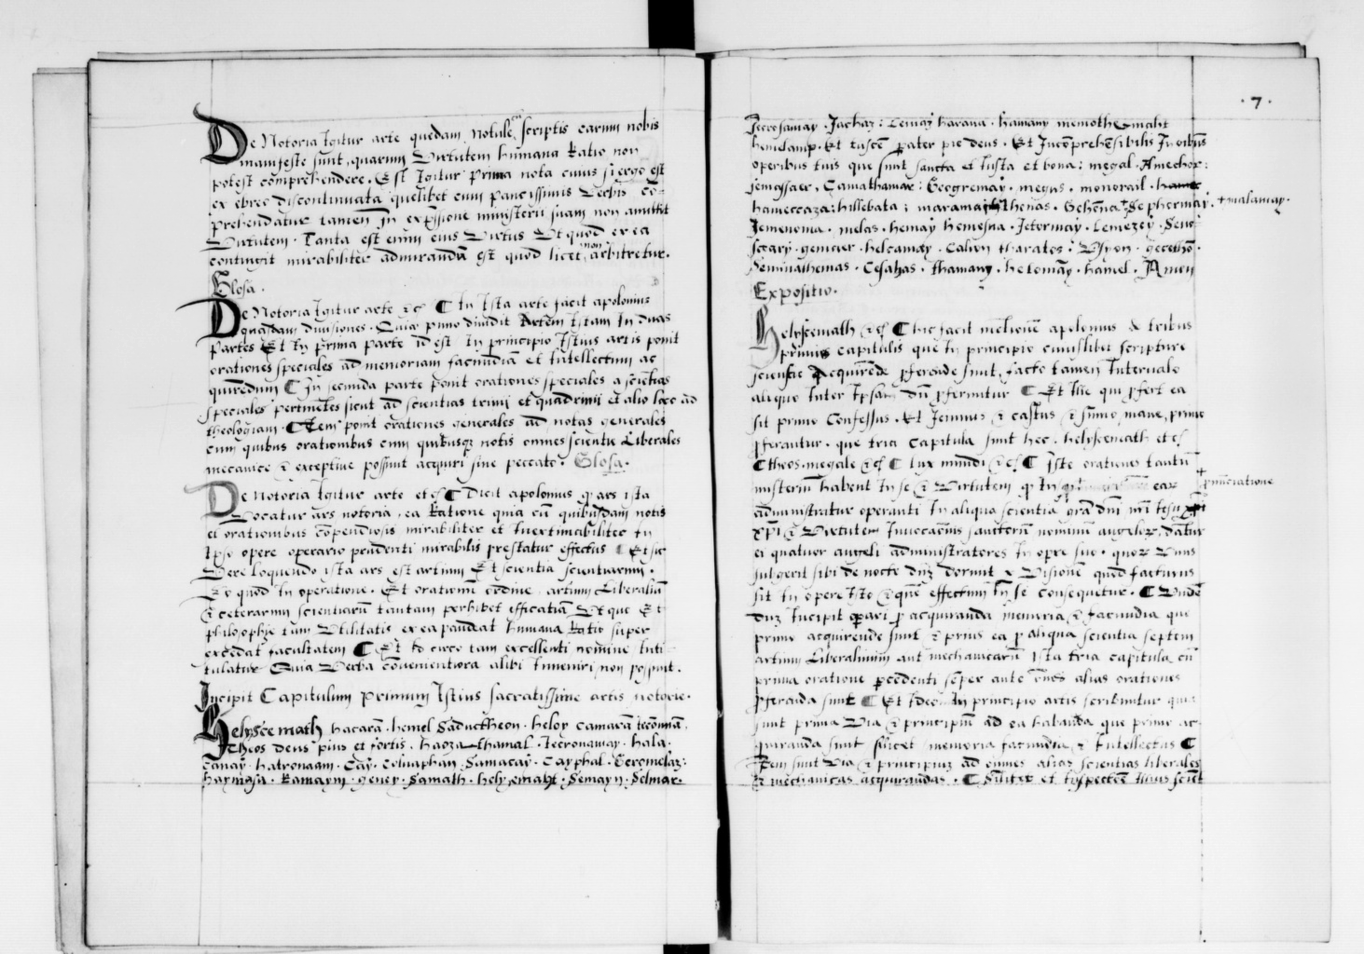 De Notoria Igitur arte quedam notule scriptis earum nobis
manifeste sunt, quarum Virtutem humana Ratio non
potest comprehendere. Est Igitur prima nota cuius si ergo est
ex ebreo discontinuata quelibet cum paucissimis Verbis co-
prehendatur tamen in expssione misterij suam non amittit
Virtutem. Tanta est enim eius Virtus Vt quod ex ea
contingit mirabiliter admirandū est quod licet non arbitretur.
Glosa.
De Notoria Igitur arte &c ¶ In Ista arte facit apolonius
quasdam diuisiones. Quia primo diuidit Artem Istam In duas
partes Et In prima parte id est In principio Istius artis ponit
orationes speciales ad memoriam facundiam et Intellectum ac
quirēdum ¶ In secunda parte ponit orationes speciales a scientias
speciales pertinētes sicut ad scientias triuij et quadriuij et alio loco ad
theologiam. ¶ Item ponit orationes generales ad notas generales
cum quibus orationibus cum quibusq notis omnes scientie Liberales
mecanice & exceptiue possunt acquiri sine peccato. Glosa.
De Notoria Igitur arte et c ¶ Dicit apolonius q ars ista
Vocatur ars notoria, ea Ratione quia cum quibusdam notis
et orationibus cōpendiosis mirabiliter et Inextimabiliter In
Ipso opere operario prudenti mirabilis prestatur effectus ¶ Et sic
Vere loquendo ista ars est artium Et scientia scientiarum.
quod In operatione. Et orationum ordine artium Liberaliū
& ceterarum scientiarū tantam perhibet efficatiā Vt que Et
philosophie tam Vtilitatis ex ea pandeat humana Ratio super
excedat facultatem ¶ Et Io circo tam excellenti nomine Inti-
tulatur Quia Verba conuementiora alibi Inueniri non possunt.
Incipit Capitulum primum Istius sacratissime artis notorie.
Helyscemath hacara. hemel Saductheon. heloy camarā
Theos deus pius et fortis. hazamal. Iecronamay. hala.
hatronaam. Cay. Colnaphan Samacay. Cayphal. Geromelaz:
haymasa. Ramaym. geney. Samath. hely. Semayn. Selmar.
· 7 ·
Iecrosamay. Iachaz: Lemay harana. hamany memothGmaht
henidamp. Et tuscē pater pie deus. Et Incōprehēsibilis In oibus
operibus tuis que sunt sancta et Iusta et bona: megal. Amechor:
Camathamar: Geogremay. megus. monorail. hamet
hameccaza: hillebata: maramaythenas. Gehena. Sephormay. + malamay.
Iemenoma. melas. hemay hemesna. Ietormay. Lemezey. Senc
secary. gemcier. helcamay. Calion tharatos. Vsyon. gecethō.
Seminathemas. Cesahas. thamany. helomay. hamel. Amen
Expositio.
Helyscemath &c ¶ hic facit mētionē apolonius de tribus
primis capitulis que In principio cuiuslibet scripture
scientie Acquirēde pferende sunt, facto tamen Interuallo
aliquo Inter Ipsas dū pferuntur ¶ Et Ille qui pfert ea
sit primo Confessus. Et Ieiunus & castus & sumo mane, primo
pferantur. que tria capitula sunt hec. helyscemath et c
¶ theos. megale &c ¶ lux mundi &c ¶ Iste orationes tantū
misteriū habent In se & Virtutem q In eaꝝ + pnūciatione
administratur operanti In aliqua scientia gra dni nri Iesu xpi
ei quatuor angeli administratores In opere suo. quoꝝ Vnus
sugerit sibi de nocte duz dormit & Visionē quid facturus
sit In opere Isto & que effectum In se consequetur. ¶ Vnde
duz Incipit opari p acquiranda memoria & facundia que
primo acquirende sunt & prius ea p aliqua scientia septem
artium Liberalium aut mechanicarū ista tria capitula cū
prima oratione precedenti semper ante omēs alias orationes
pferanda sunt ¶ Et Idem In principio artis scribuntur quia
sunt prima Via & principiū ad ea habanda que primo ac-
quiranda sunt scilicet memoria facundia & Intellectus ¶
Item sunt Via & principiuz ad omnes alias scientias liberales
& mechanicas acquirandas. ¶ et Inspectoē Illius scient